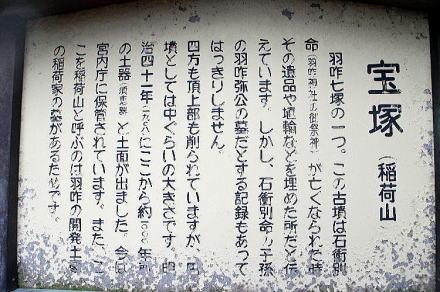 宝塚（稲荷山）
羽咋七塚の一つ。この古墳は石衝別
命（羽咋神社の御祭神）が亡くなられた時
その遺品や埴輪などを埋めた所だと伝
えています。しかし、石衝別命の子孫
の羽咋弥公の墓だとする記録もあって
はっきりしません。
四方も頂上部も削られていますが、円
墳としては中ぐらいの大きさです。明
治四十一年（一九〇八）にここから約一三〇〇年前
の土器（須恵器）と土面が出ました。今は
宮内庁に保管されています。また、こ
こを稲荷山と呼ぶのは羽咋の開発土
の稲荷家の墓があるためです。